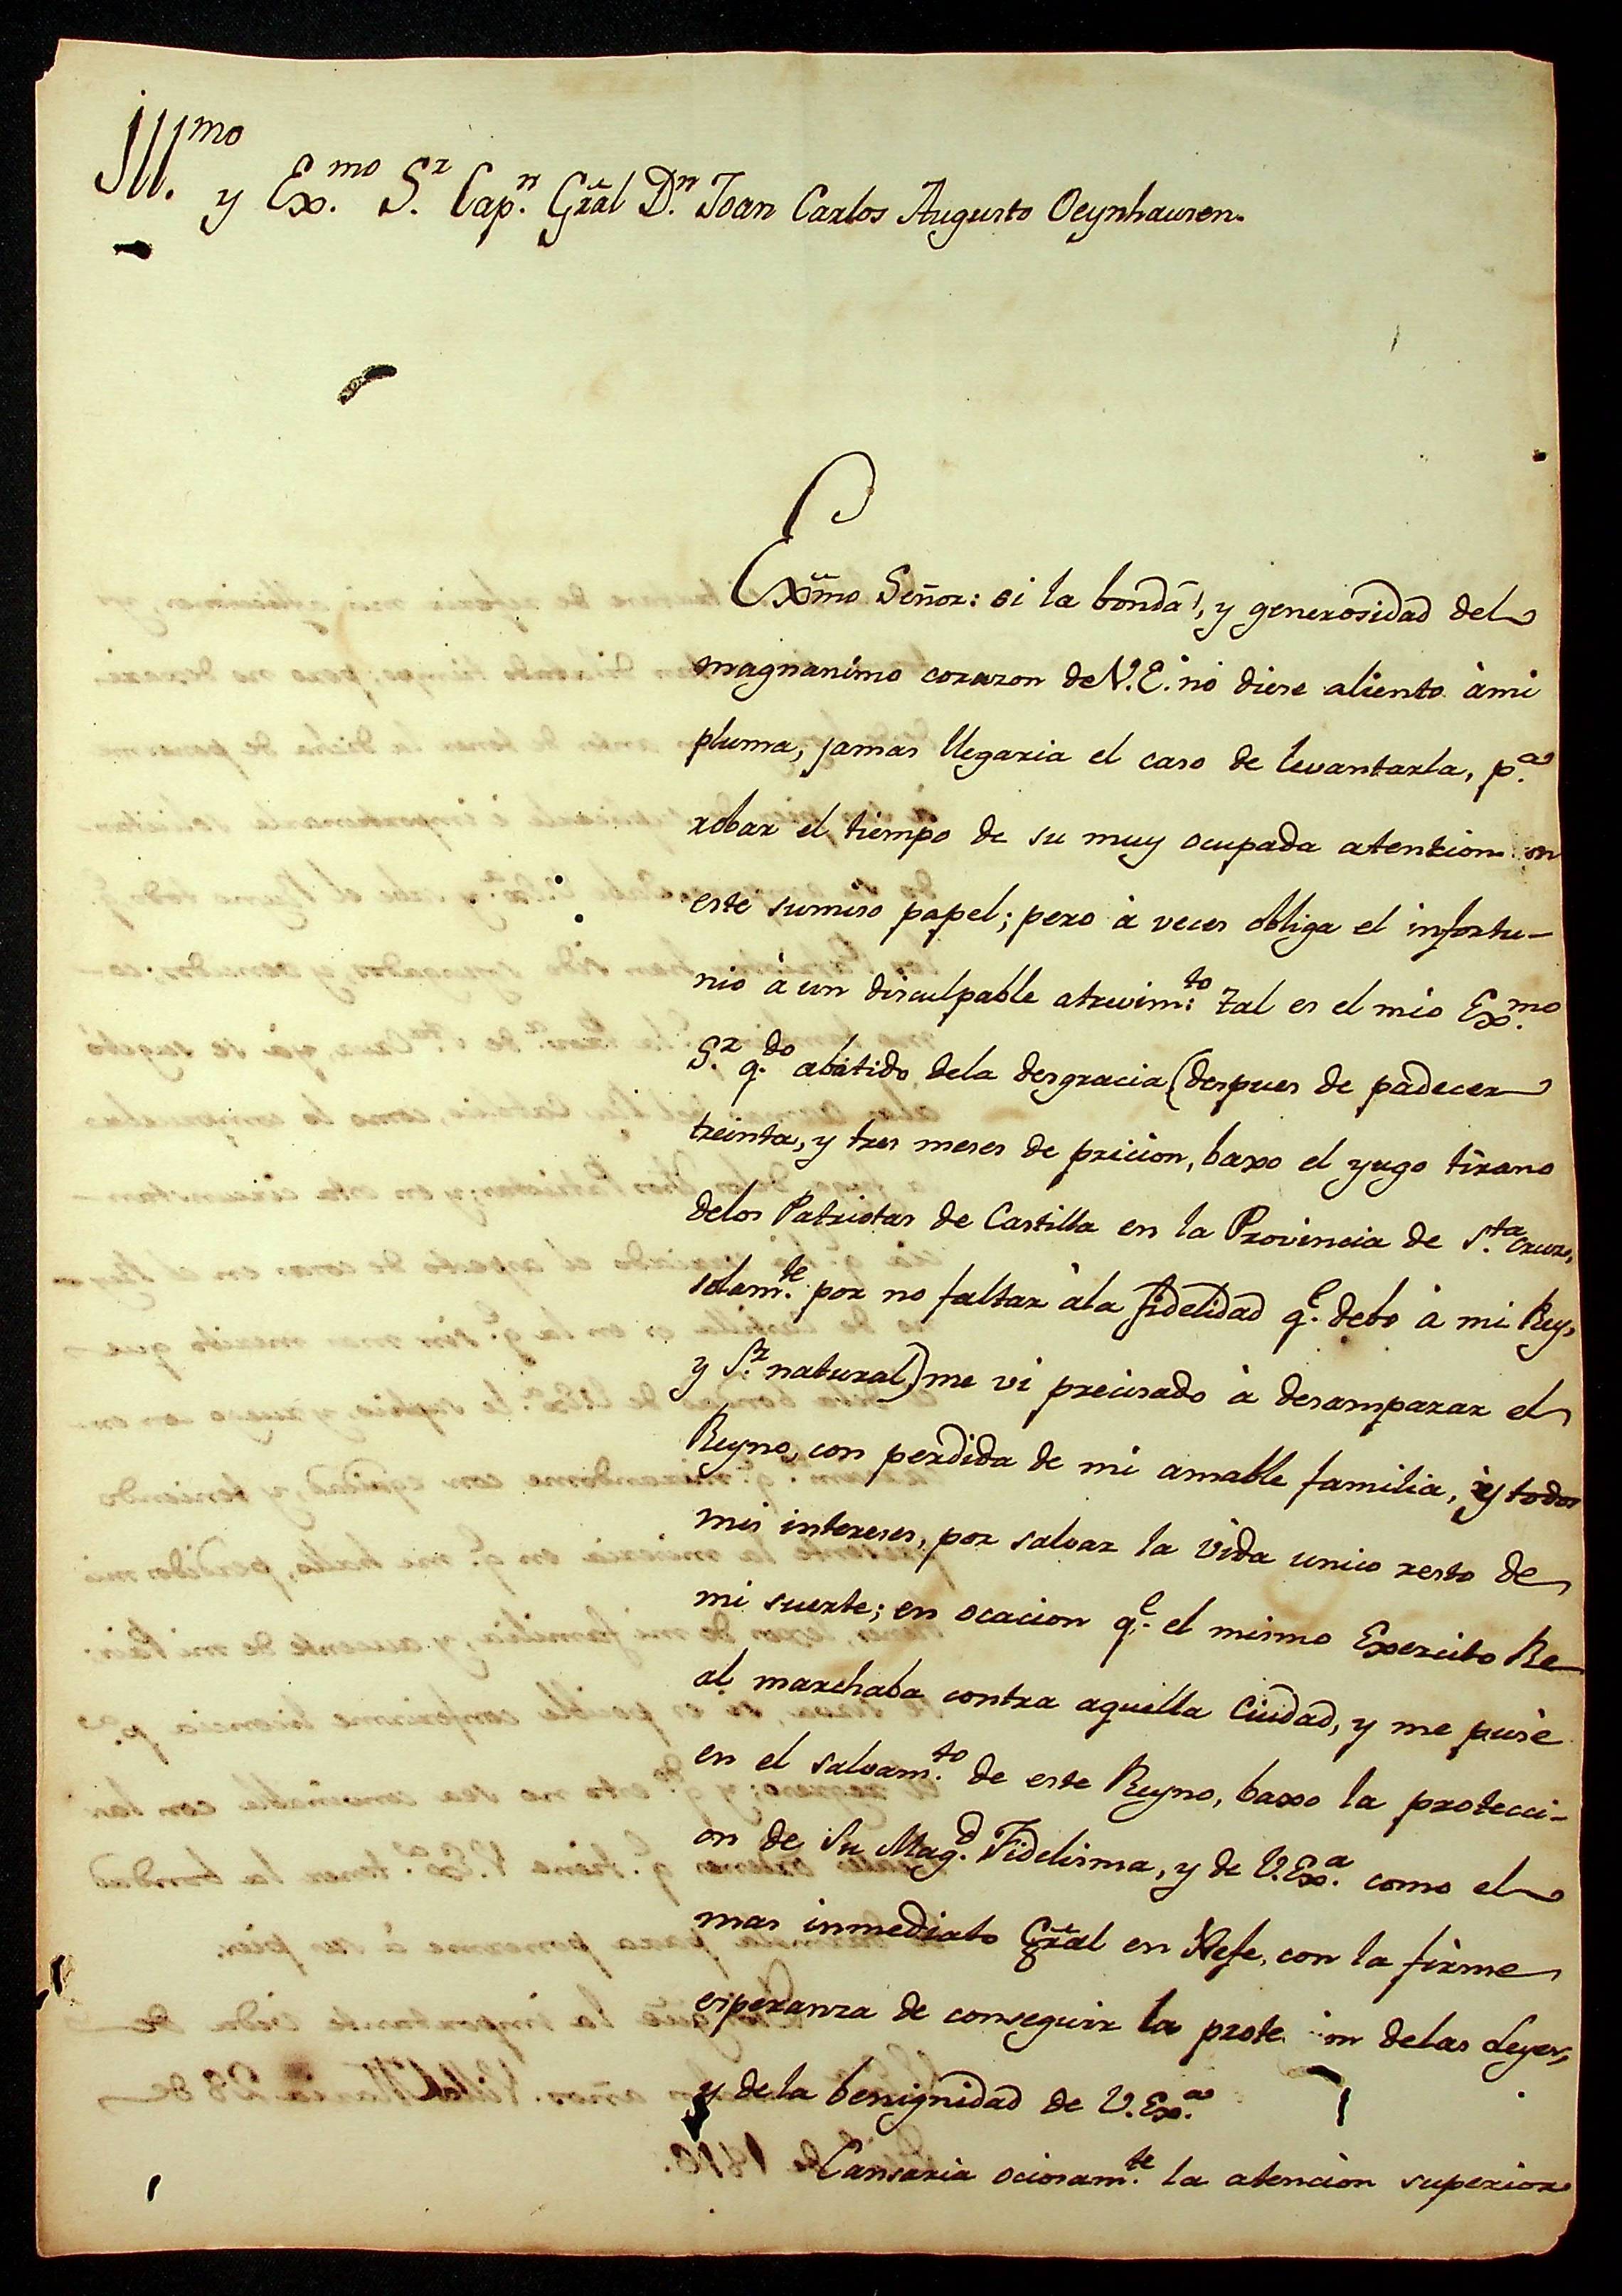 Ill.mo
y Ex.mo S.r Cap.n Gräl D.n Joan Carlos Augusto Oeynhausen.
Exm̃o Señor: si la bondá, y generosidad del
magnanimo corazon de V.E. no diese aliento à mi
pluma, jamas llegaria el caso de levantarla, p.a
robar el tiempo de su muy ocupada atenzion en
este sumiso papel; pero à veces obliga el infortu-
nio à un disculpable atrevim.to Tal es el mio Ex.mo
S.r q.do abatido dela desgracia (despues de padecer
treinta, y tres meses de pricion, baxo el yugo tirano
delos Patriotas de Castilla en la Provincia de S.ta Cruz,
solam.te por no faltar àla fidelidad q.e debo à mi Rey,
y S.r natural,) me vi precisado à desamparar el
Reyno, con perdida de mi amable familia, y todos
mis intereses, por salvar la vida unico resto de
mi suerte; en ocacion q.e el mismo Exercito Re-
al marchaba contra aquella Ciudad, y me puse
en el salvam.to de este Reyno, baxo la protecci-
on de Su Mag.d Fidelisma, y de V.Ex.a como el
mas inmediato Gräl en Xefe, con la firme
esperanza de conseguir la prote on delas Leyes,
y dela benignidad de V.Ex.a
Cansaria ociosam.te la atencion superior